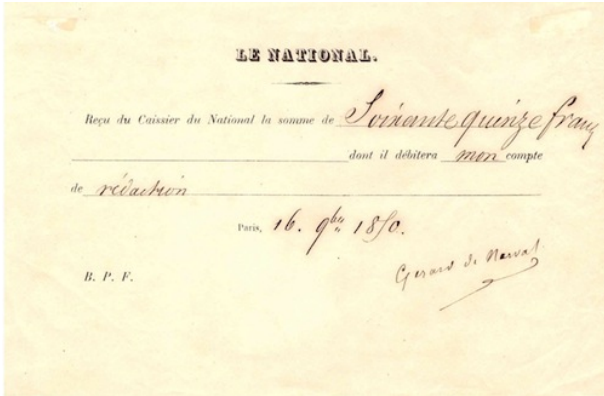 LE NATIONAL.
Reçu du Caissier du National la somme de Soixante quinze francs
dont il débitera mon compte
de rédaction
Paris, 16. 9bre 1850.
Gérard de Nerval
B. P. F.